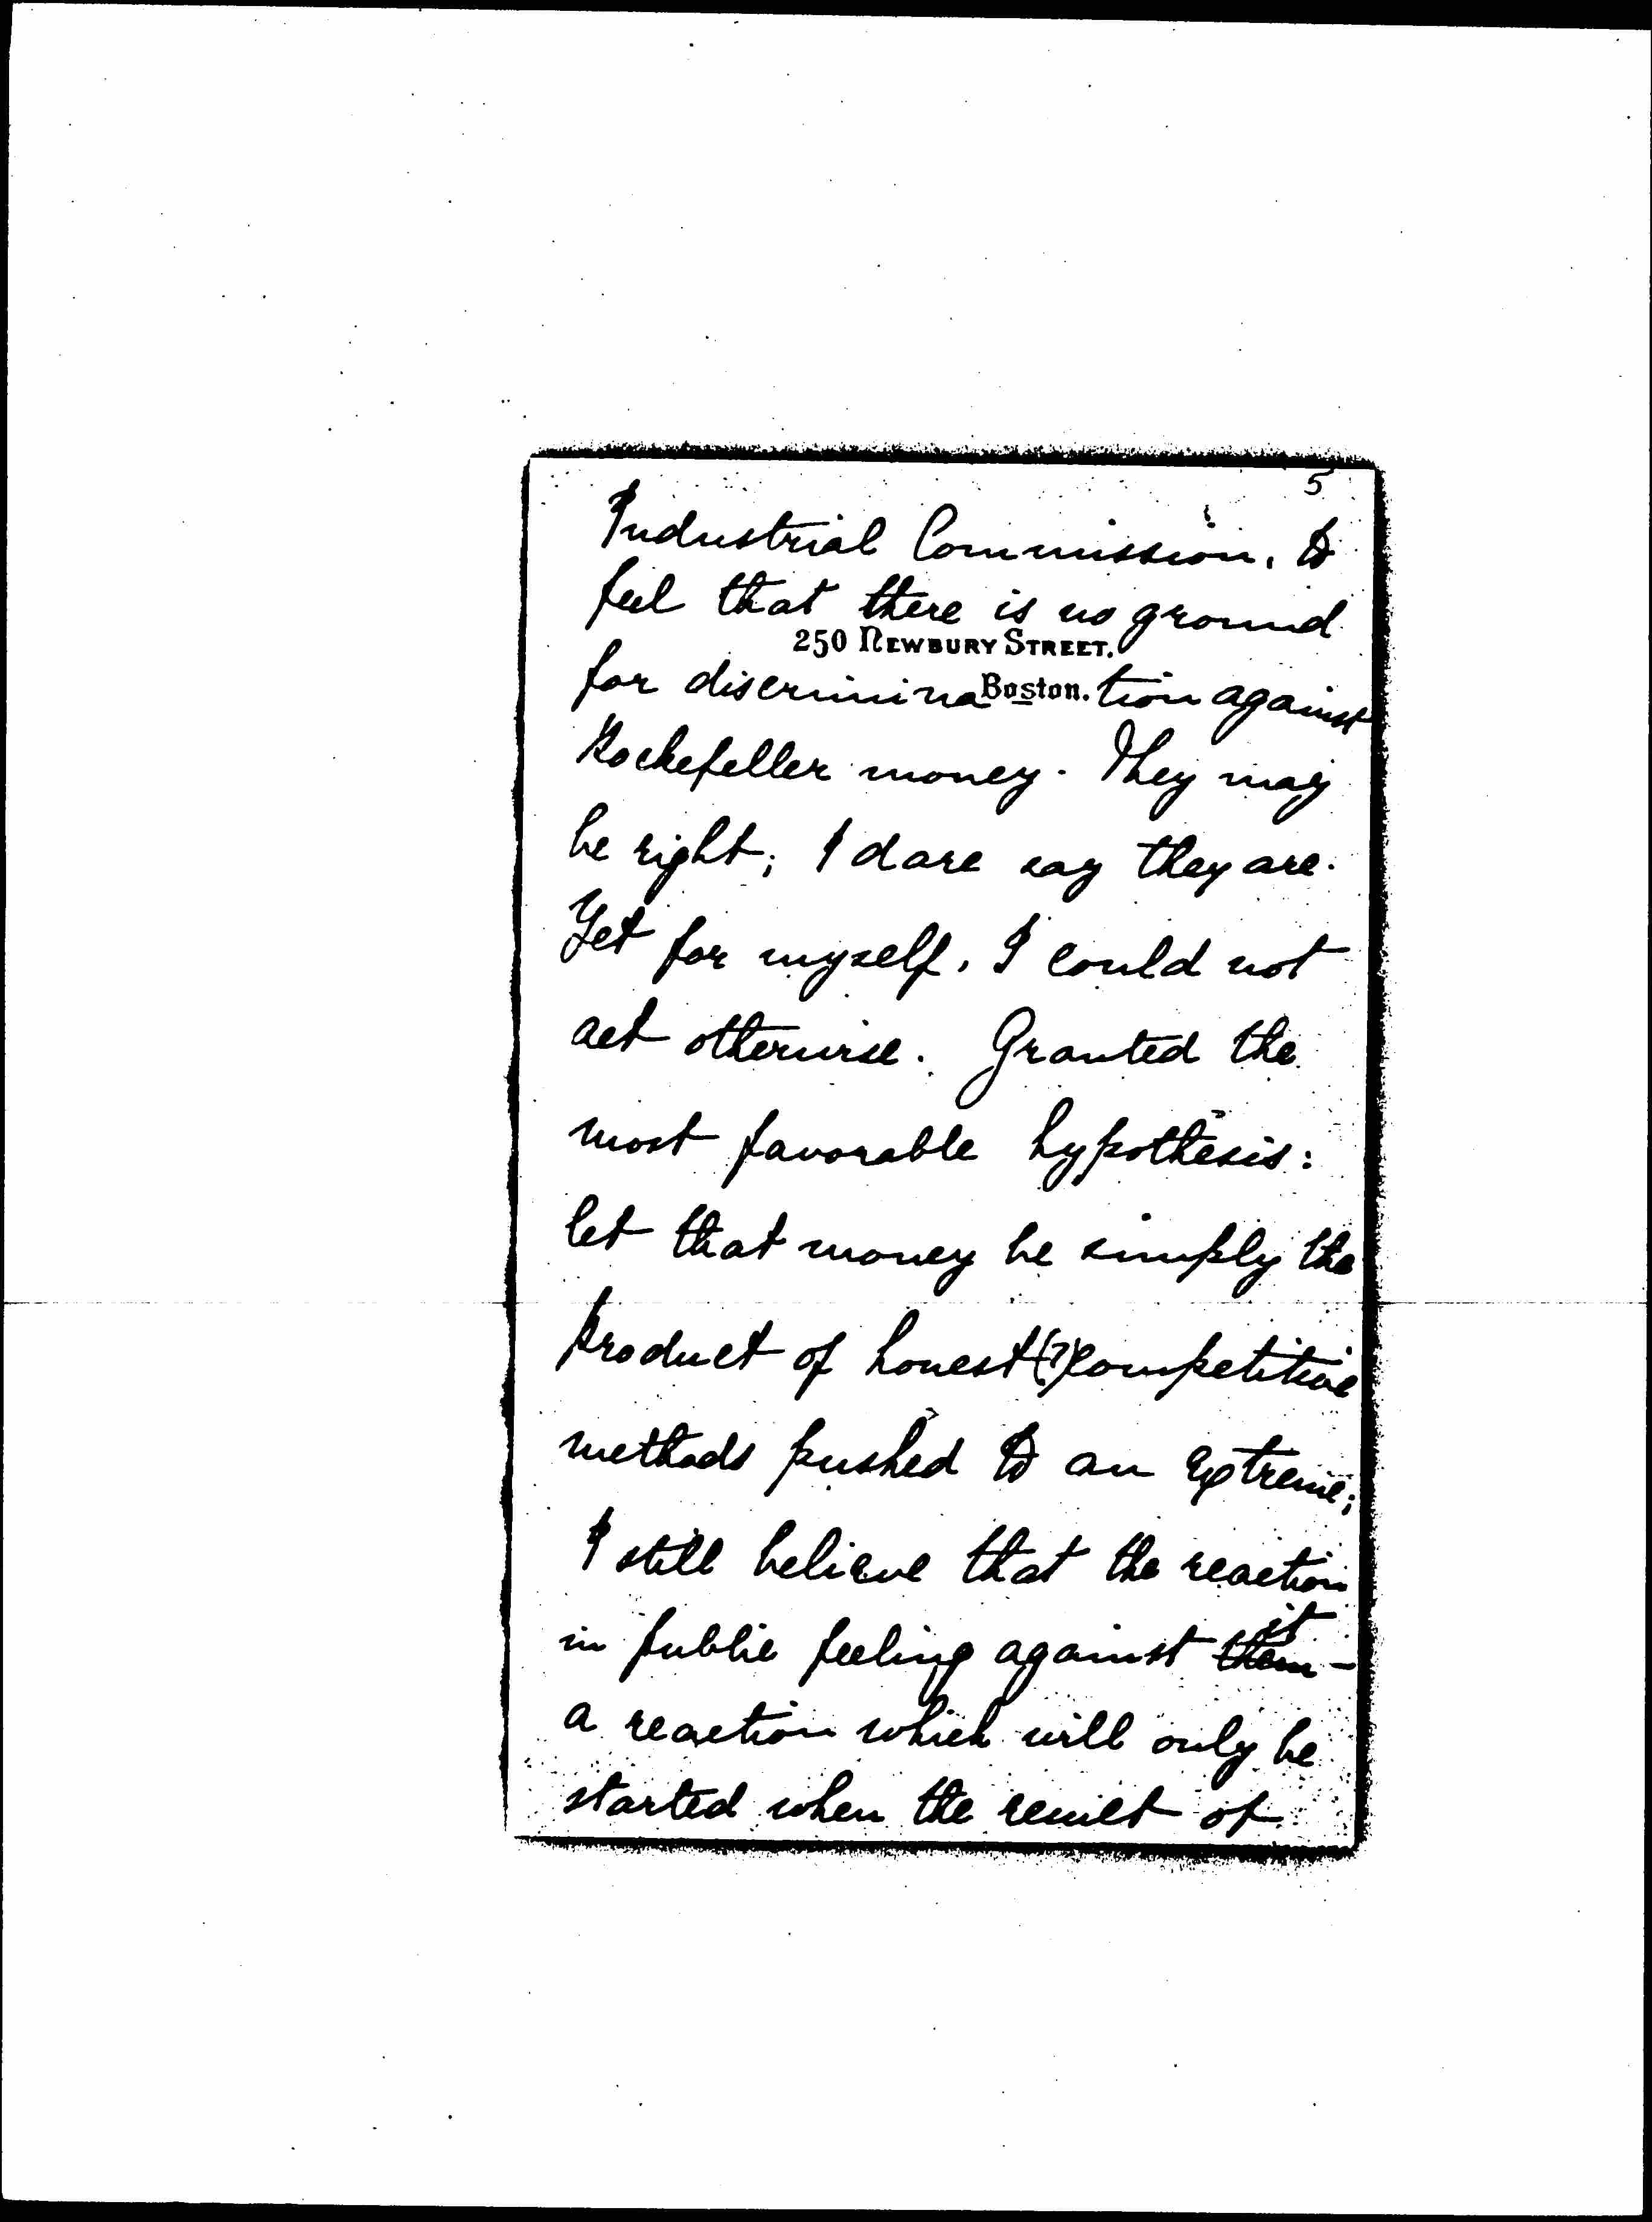 5
Industrial Commission, to
feel that there is no ground
250 Newbury Street.
for discrimina Boston. tion against
Rockefeller money. They may
be right; I dare say they are.
Yet for myself, I could not
act otherwise. Granted the
most favorable hypothesis:
let that money be simply the
product of honest(?)competitive
methods pushed to an extreme;
I still believe that the reaction
it
in public feeling against them -
a reaction which will only be
started when the result of